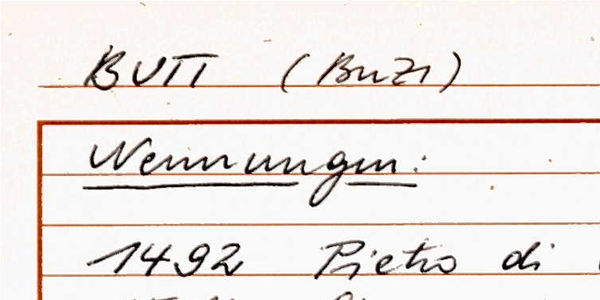 BUTI (Buzi)
Nennungen:
1492 Pietro di